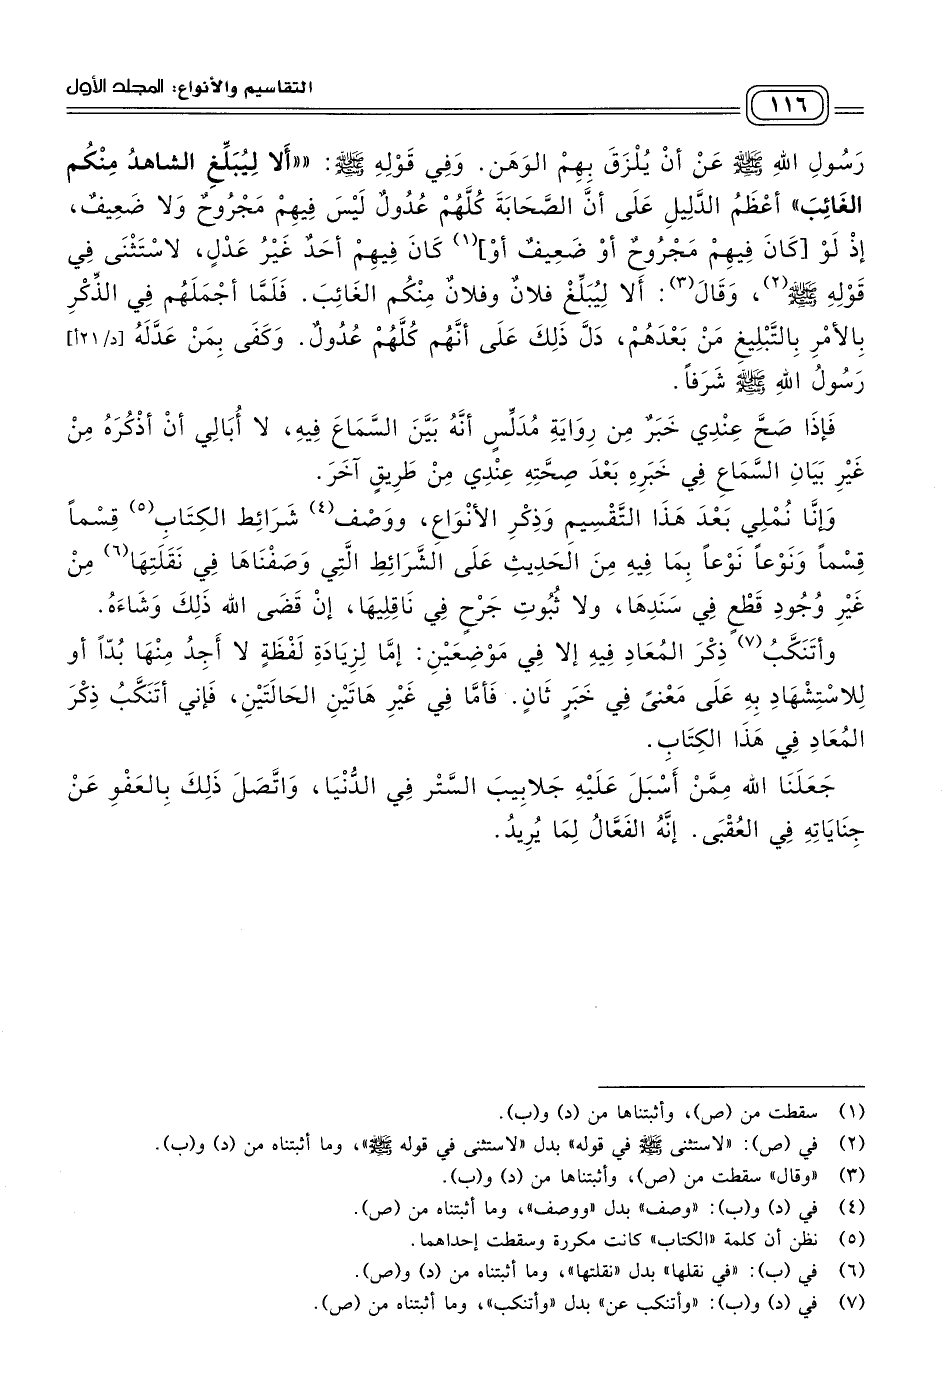 التقاسيم والأنواع: المجلد الأول
١١٦
رَسُولِ اللهِ ﷺ عَنْ أنْ يُلْزَقَ بِهِمْ الوَهَن. وَفِي قَوْلِهِ ﷺ: ««ألا لِيُبَلِّغِ الشاهدُ مِنْكُم
الغَائِبَ» أعْظَمُ الدَّلِيلِ عَلَى أنَّ الصَّحَابَةَ كُلَّهُمْ عُدُولٌ لَيْسَ فِيهِمْ مَجْرُوحٌ وَلا ضَعِيفٌ،
إذْ لَوْ [كَانَ فِيهِمْ مَجْرُوحٌ أوْ ضَعِيفٌ أوْ](١) كَانَ فِيهِمْ أحَدٌ غَيْرُ عَدْلٍ، لاسْتَثْنَى فِي
قَوْلِهِ ﷺ(٢)، وَقَالَ(٣): ألا لِيُبَلِّغْ فلانٌ وفلانٌ مِنْكُم الغَائِبَ. فَلَمَّا أجْمَلَهُم فِي الذِّكْرِ
بِالأمْرِ بِالتَّبْلِيغِ مَنْ بَعْدَهُمْ، دَلَّ ذَلِكَ عَلَى أنَّهُم كُلَّهُمْ عُدُولٌ. وَكَفَى بِمَنْ عَدَّلَهُ [د/٢١أ]
رَسُولُ اللهِ ﷺ شَرَفاً.
فَإذَا صَحَّ عِنْدِي خَبَرٌ مِن رِوَايَةِ مُدَلِّسٍ أنَّهُ بَيَّنَ السَّمَاعَ فِيهِ، لا أُبَالِي أنْ أذْكُرَهُ مِنْ
غَيْرِ بَيَانِ السَّمَاعِ فِي خَبَرِهِ بَعْدَ صِحَّتِهِ عِنْدِي مِنْ طَرِيقٍ آخَرَ.
وَإنَّا نُمْلِي بَعْدَ هَذَا التَّقْسِيمِ وَذِكْرِ الأنْوَاعِ، ووَصْف(٤) شَرَائِط الكِتَابِ(٥) قِسْماً
قِسْماً وَنَوْعاً نَوْعاً بِمَا فِيهِ مِنَ الحَدِيثِ عَلَى الشَّرَائِطِ الَّتِي وَصَفْنَاهَا فِي نَقَلَتِهَا(٦) مِنْ
غَيْرِ وُجُودِ قَطْعٍ فِي سَنَدِهَا، ولا ثُبُوتِ جَرْحٍ فِي نَاقِلِيهَا، إنْ قَضَى الله ذَلِكَ وَشَاءَهُ.
وأتَنَكَّبُ(٧) ذِكْرَ المُعَادِ فِيهِ إلا فِي مَوْضِعَيْنِ: إمَّا لِزِيَادَةِ لَفْظَةٍ لا أجِدُ مِنْهَا بُدّاً أو
لِلاسْتِشْهَادِ بِهِ عَلَى مَعْنىً فِي خَبَرٍ ثَانٍ. فَأمَّا فِي غَيْرِ هَاتَيْنِ الحَالَتَيْنِ، فَإني أتَنَكَّبُ ذِكْرَ
المُعَادِ فِي هَذَا الكِتَابِ.
جَعَلَنَا الله مِمَّنْ أَسْبَلَ عَلَيْهِ جَلابِيبَ السَّتْرِ فِي الدُّنْيَا، وَاتَّصَلَ ذَلِكَ بِالعَفْوِ عَنْ
جِنَايَاتِهِ فِي العُقْبَى. إنَّهُ الفَعَّالُ لِمَا يُرِيدُ.
(١) سقطت من (ص)، وأثبتناها من (د) و(ب).
(٢) في (ص): «لاستثنى ﷺ في قوله» بدل «لاستثنى في قوله ﷺ»، وما أثبتناه من (د) و(ب).
(٣) «وقال» سقطت من (ص)، وأثبتناها من (د) و(ب).
(٤) في (د) و(ب): «وصف» بدل «ووصف»، وما أثبتناه من (ص).
(٥) نظن أن كلمة «الكتاب» كانت مكررة وسقطت إحداهما.
(٦) في (ب): «في نقلها» بدل «نقلتها»، وما أثبتناه من (د) و(ص).
(٧) في (د) و(ب): «وأتنكب عن» بدل «وأتنكب»، وما أثبتناه من (ص).